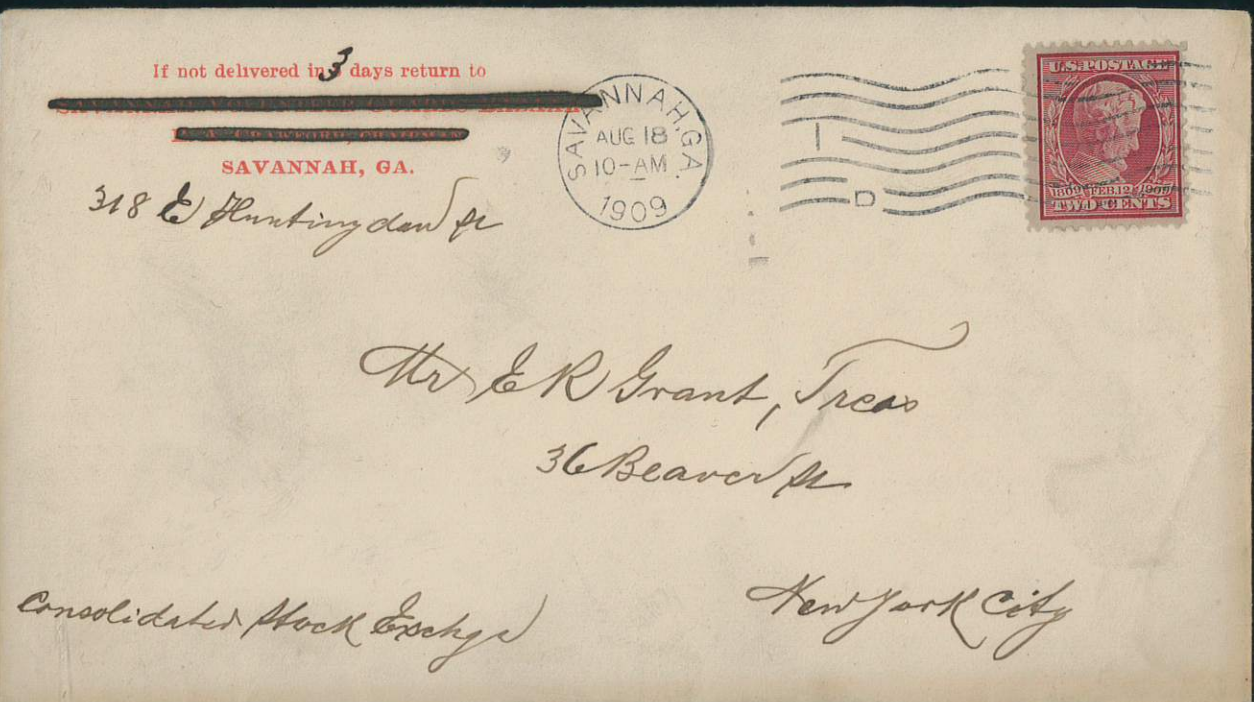 If not delivered in 3 days return to
SAVANNAH VOLUNTEER GUARDS
CRAWFORD, CHAIRMAN
SAVANNAH, GA.
318 E Huntingdon St
SAVANNAH, GA.
AUG 18
10-AM
1909
1
D
U.S. POSTAGE
1809 FEB. 12 1909
TWO CENTS
Mr E R Grant, Treas
36 Beaver St
New York City
Consolidated Stock Exchge